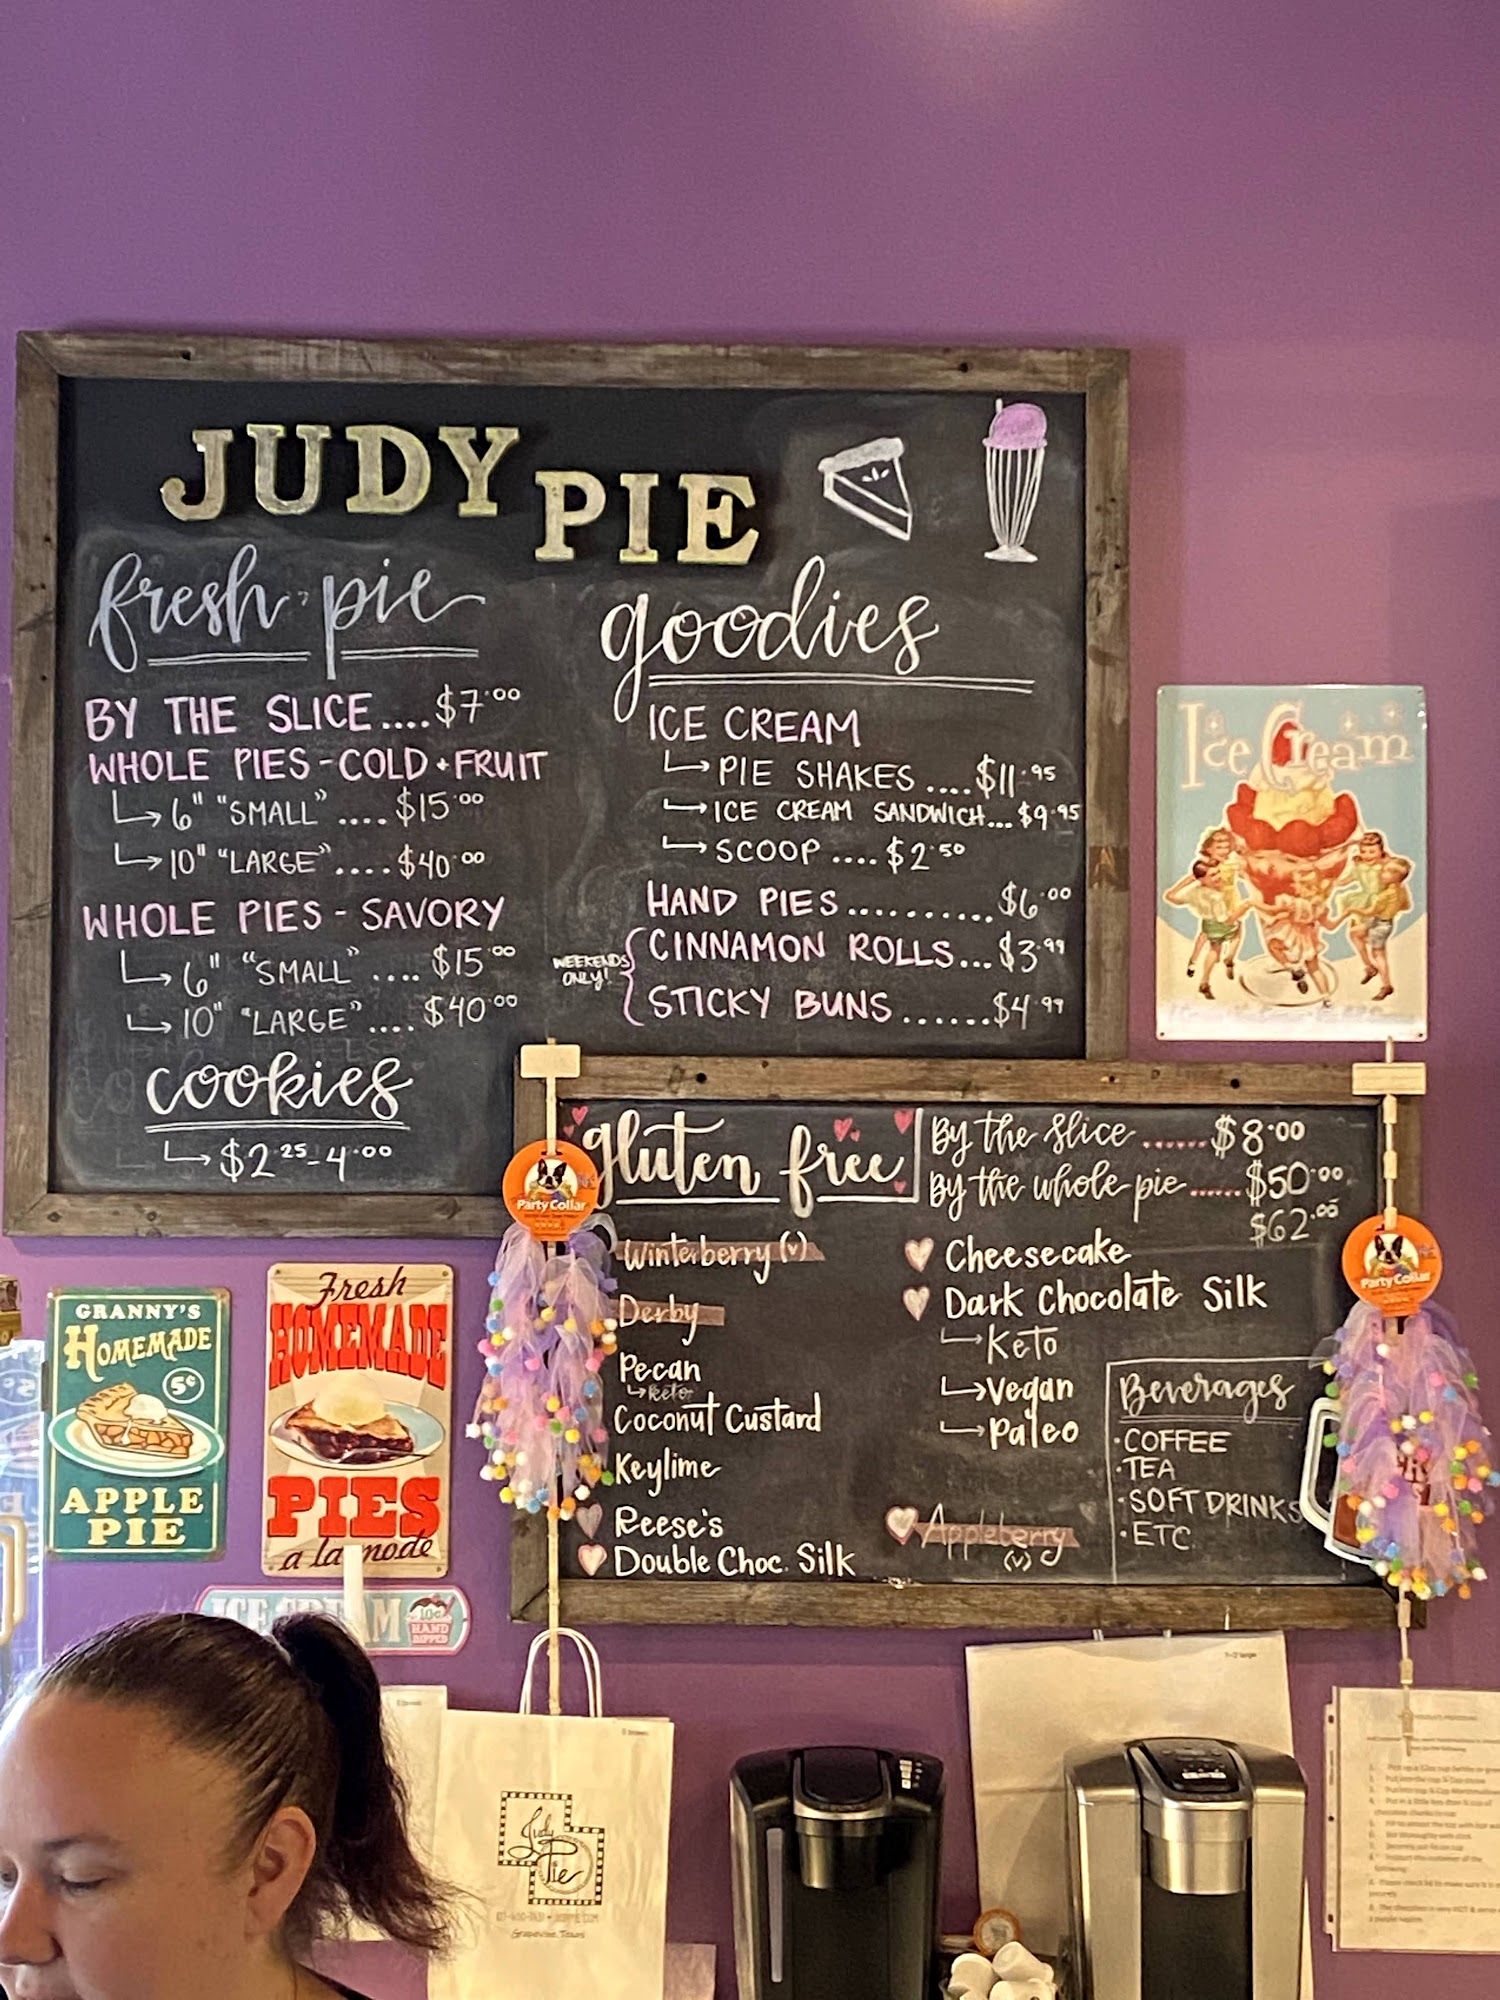 JUDY PIE
fresh pie
BY THE SLICE....$7.00
WHOLE PIES - COLD + FRUIT
6" "SMALL" ....$15.00
10" "LARGE" ....$40.00
WHOLE PIES - SAVORY
6" "SMALL" ....$15.00
10" "LARGE" ....$40.00
cookies
$2.25-4.00
goodies
ICE CREAM
PIE SHAKES ....$11.95
ICE CREAM SANDWICH...$9.95
SCOOP ....$2.50
HAND PIES..........$6.00
WEEKENDS
ONLY!
CINNAMON ROLLS...$3.99
STICKY BUNS ......$4.99
Ice Cream
gluten free
By the slice ......$8.00
By the whole pie......$50.00
$62.00
Winterberry (v)
Derby
Pecan
keto
Coconut Custard
Keylime
Reese's
Double Choc. Silk
Cheesecake
Dark Chocolate Silk
Keto
Vegan
Paleo
Appleberry
(v)
Beverages
· COFFEE
· TEA
· SOFT DRINKS
· ETC.
Party Collar
Party Collar
GRANNY'S
HOMEMADE
5¢
APPLE
PIE
Fresh
HOMEMADE
PIES
a la mode
ICE CREAM
10¢
HAND
DIPPED
Judy
Pie
Grapevine, Texas